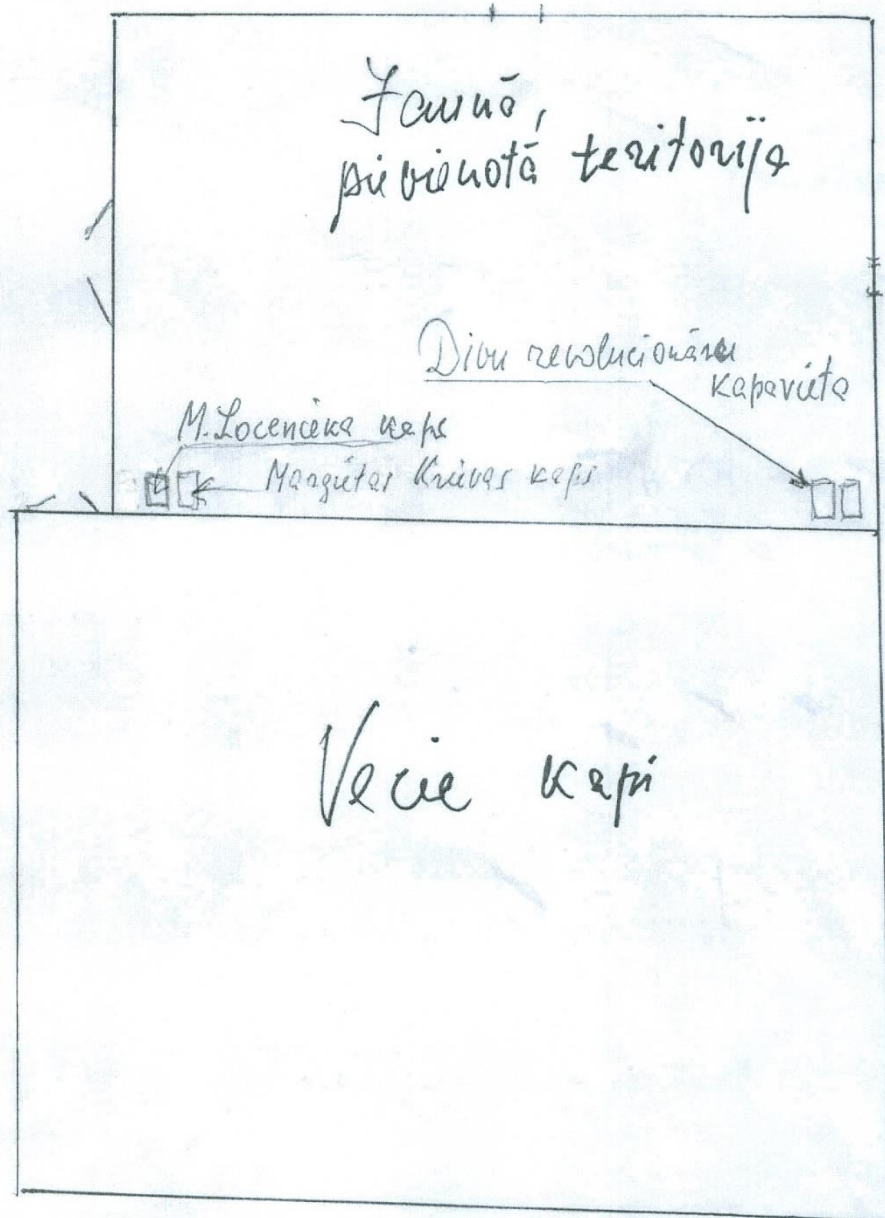 Jaunā,
pievienotā teritorija
Divu revolucionāru
kapavieta
M. Locenieka kaps
Margietas Krievas kaps
Vecie kapi